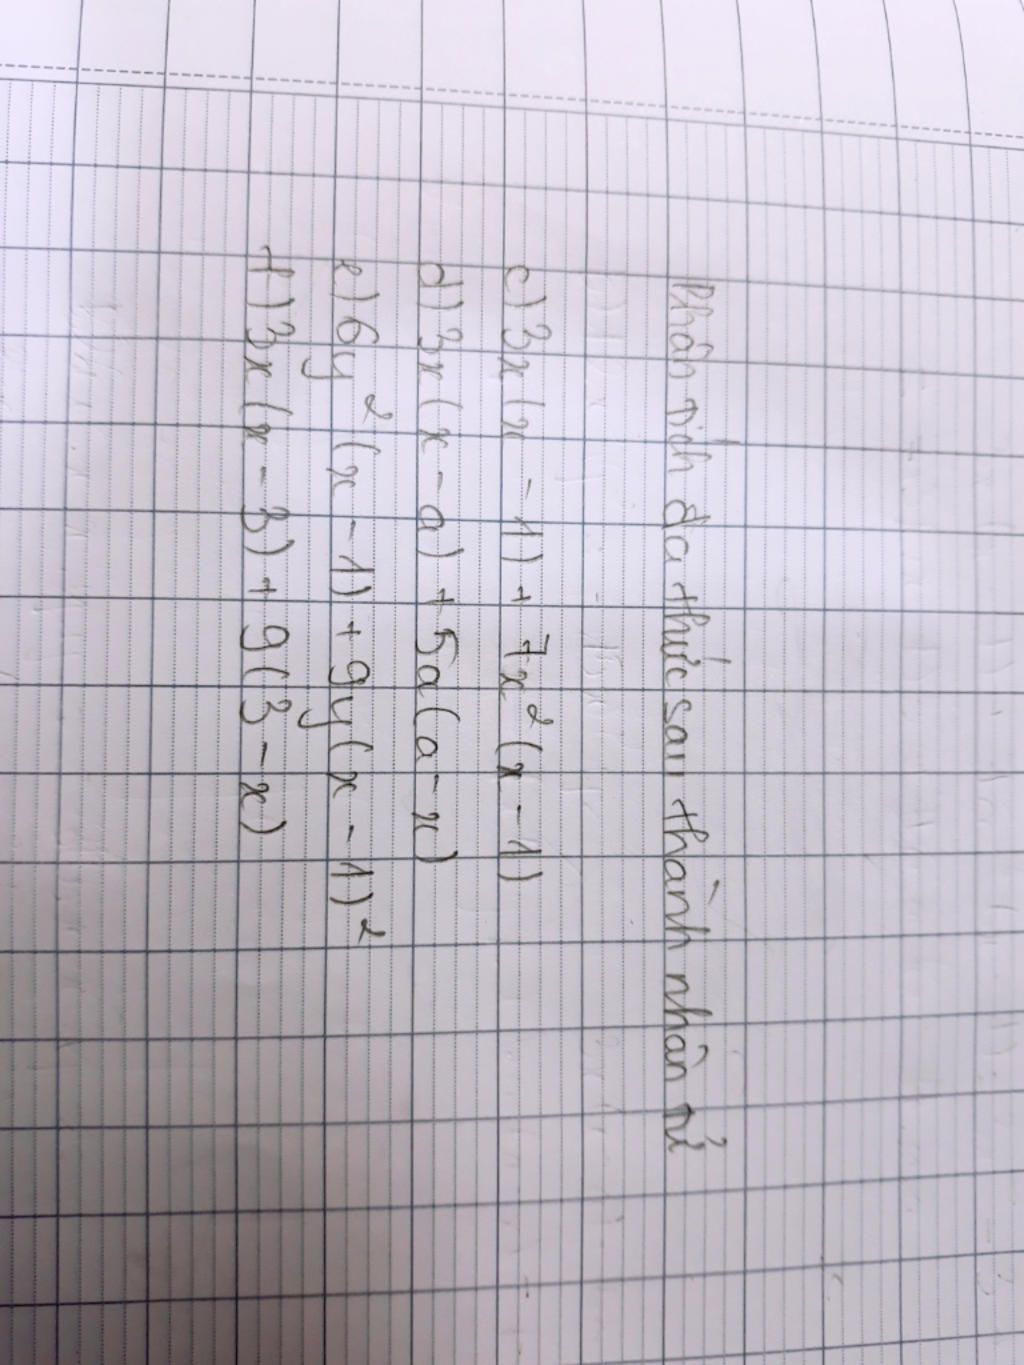 Phân tích đa thức sau thành nhân tử
c) 3x(x - 1) + 7x²(x - 1)
d) 3x(x - a) + 5a(a - x)
e) 6y²(x - 1) + 9y(x - 1)²
f) 3x(x - 3) + 9(3 - x)